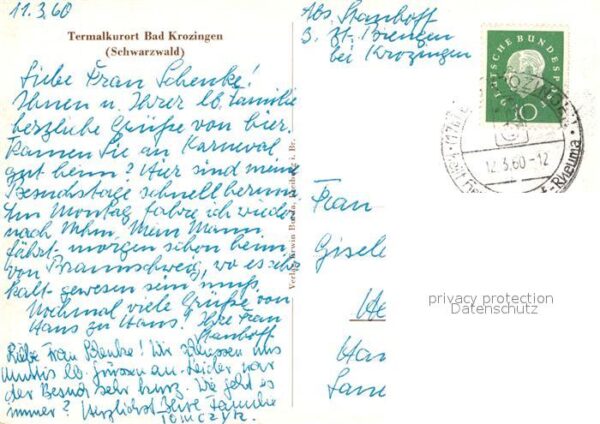 11.3.60
Termalkurort Bad Krozingen
(Schwarzwald)
Liebe Frau Schenke!
Ihnen u. Ihrer lb. Familie
herzliche Grüße von hier.
Kamen Sie an Karneval
gut heim? Hier sind meine
Besuchstage schnell herum
Am Montag fahre ich wieder
nach Mhm. Mein Mann
fährt morgen schon heim
von Braunschweig, wo es sehr
kalt gewesen sein muß.
Nochmal viele Grüße von
Haus zu Haus! Ihre Frau
Stanhoff
Liebe Frau Schenke! Wir schliessen uns
Muttis lb. Grüssen an. Leider war
der Besuch sehr kurz. Wie geht es
immer? Herzlichst Ihre Familie
Tomczyk.
Verlag Erwin Burda, Freiburg i. Br.
Abs. Stanhoff
z. Zt. Biengen
bei Krozingen
DEUTSCHE BUNDESPOST
10
12.3.60-12
Rheuma
Frau
Gisel
He
Man
Sam
privacy protection
Datenschutz